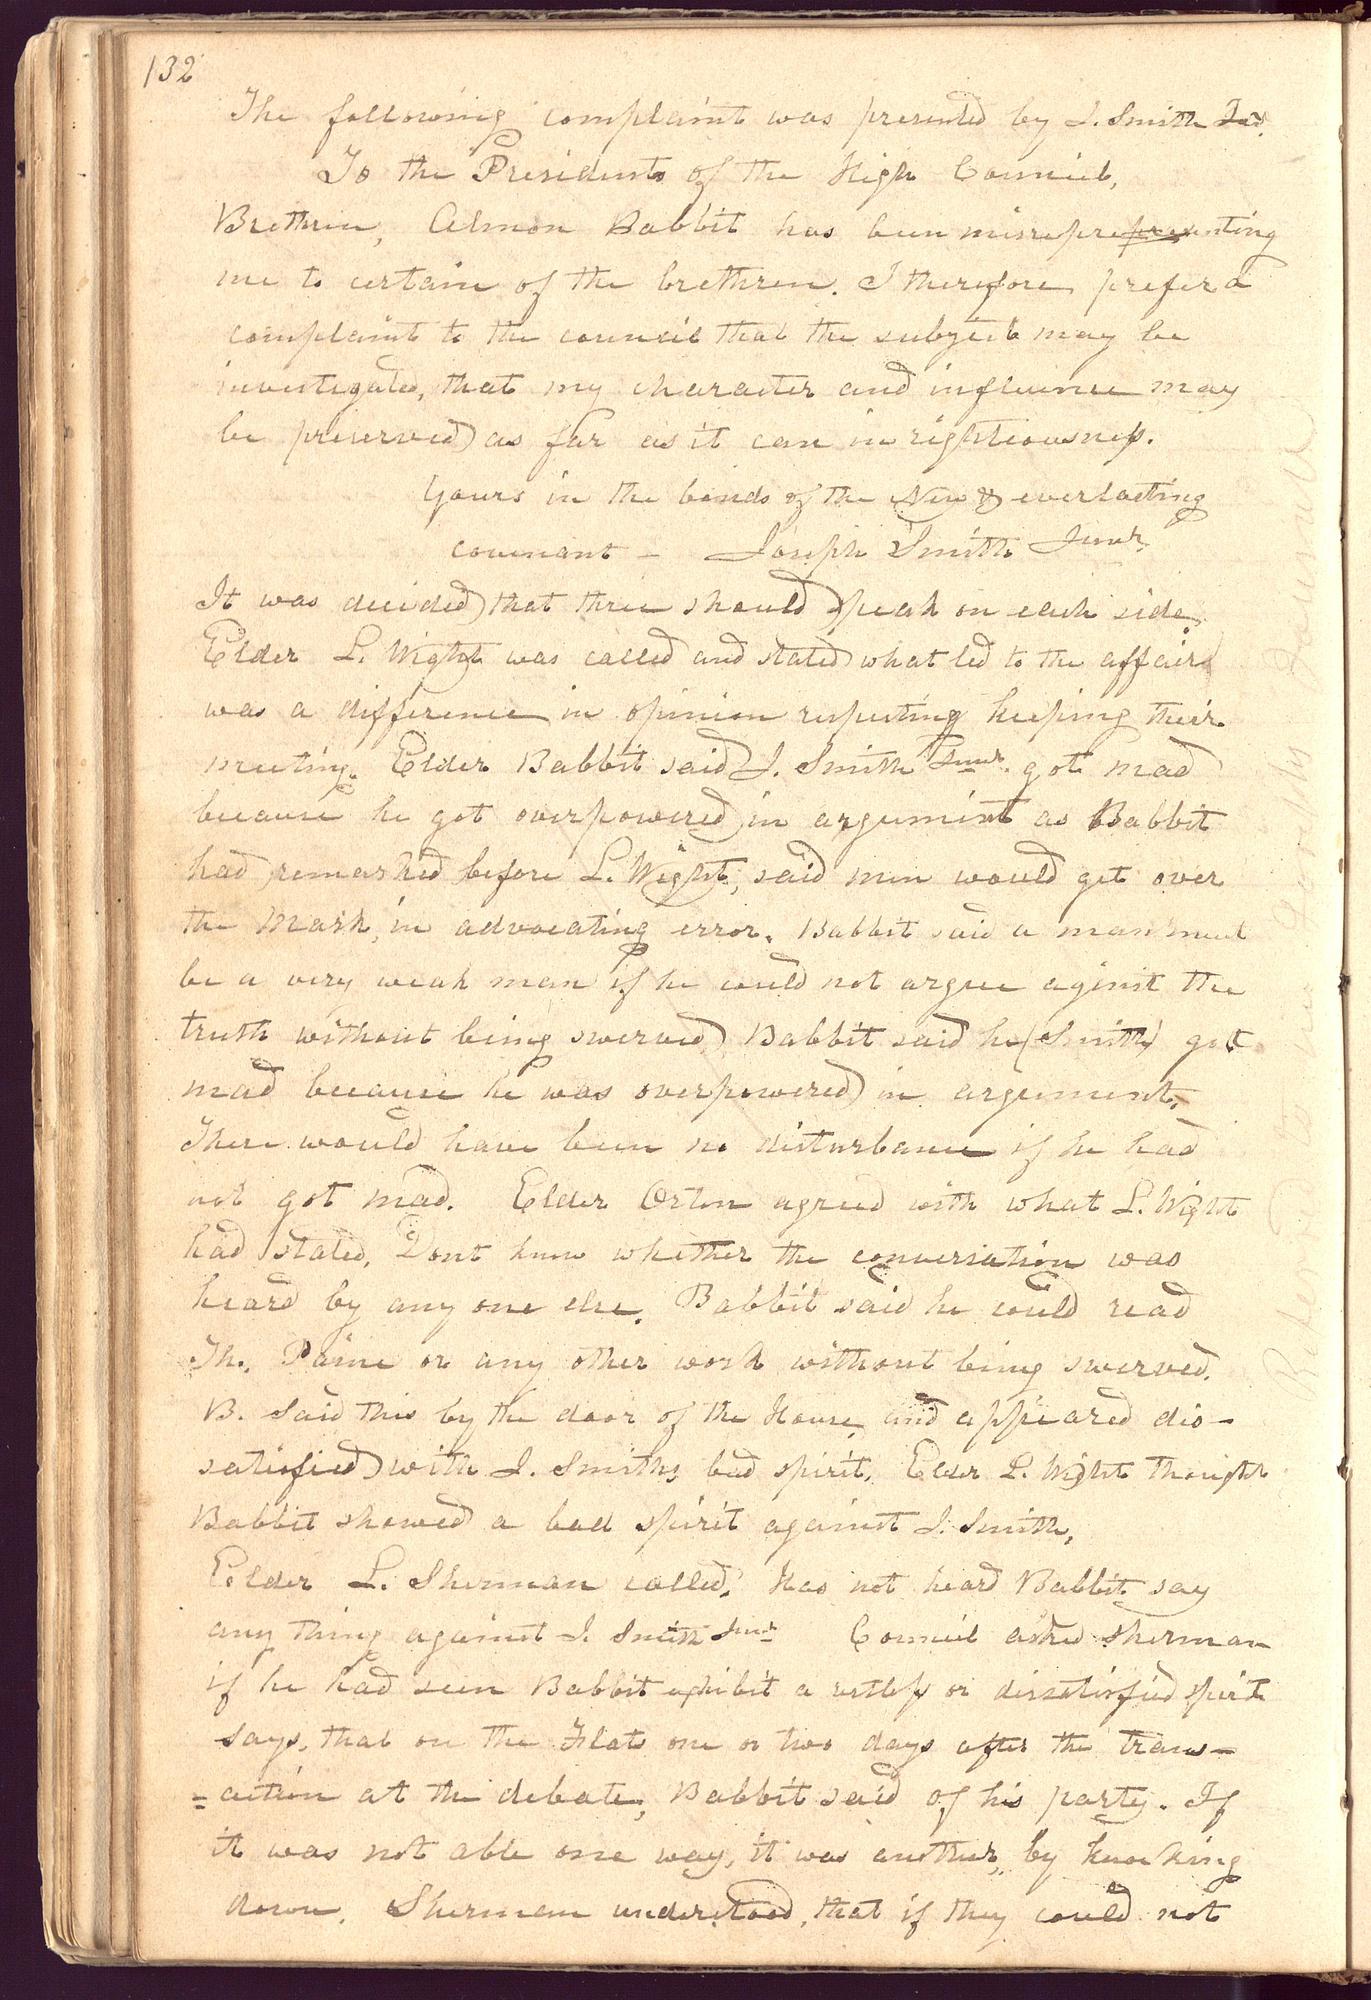 132
The following complaint was presented by J. Smith Jnr.
To the Presidents of the High Council,
Brethren, Almon Babbit has been misreprepresenting
me to certain of the brethren. I therefore prefer a
complaint to the council that the subject may be
investigated, that my character and influence may
be preserved as far as it can in righteousness.
Yours in the bonds of the New & everlasting
covenant — Joseph Smith Junr.
It was decided that three should speak on each side.
Elder L. Wight was called and stated what led to the affair
was a difference in opinion respecting keeping their
meeting. Elder Babbit said J. Smith Junr. got mad
because he got overpowered in argument as Babbit
had remarked before L. Wight, said men would get over
the Mark, in advocating error. Babbit said a man must
be a very weak man if he could not argue aginst the
truth without being swerved Babbit said he (Smith) got
mad because he was overpowered in argument.
There would have been no disturbance if he had
not got mad. Elder Orton agreed with what L. Wight
had stated, Dont know whether the conversation was
heard by any one else. Babbit said he could read
Th. Paine or any other work without being swerved.
B. said this by the door of the House, and appeared dis-
satisfied with J. Smiths bad spirit. Elder L. Wight thought
Babbit showed a bad spirit against J. Smith,
Elder L. Sherman called. Has not heard Babbit say
any thing against J. Smith Junr Council asked Sherman
if he had seen Babbit exhibit a restless or dissatisfied spirit
says, that on the Flats one or two days after the trans-
=action at the debate, Babbit said of his party. If
it was not able one way, it was another, by knocking
down. Sherman understood, that if they could not